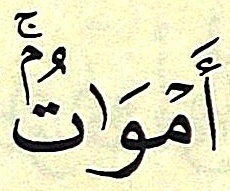 أَمۡوَٰتُۢۚ